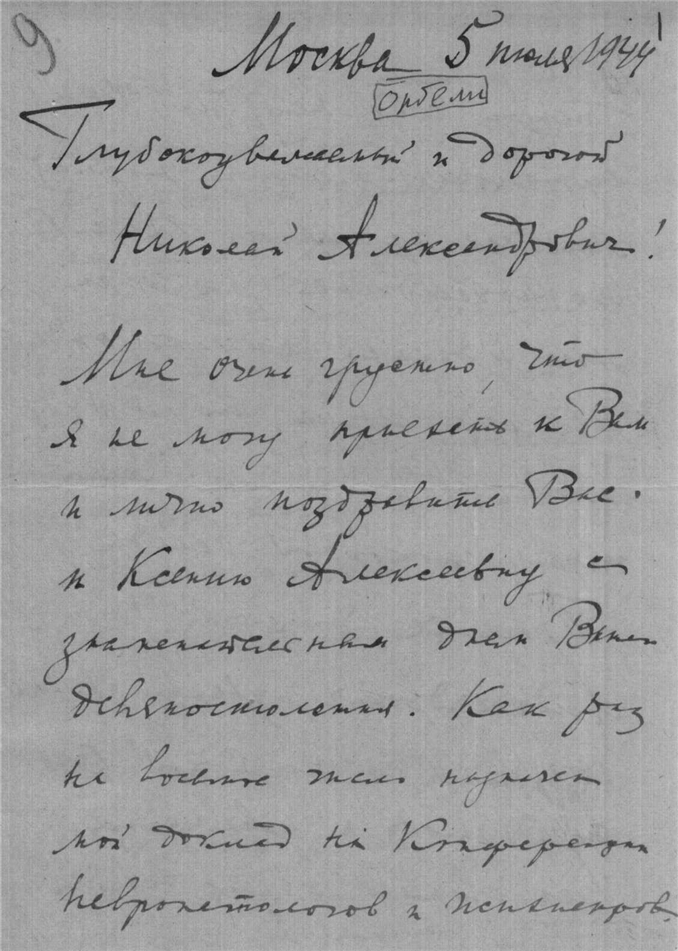 9
Москва 5 июля 1944
Орбели
Глубокоуважаемый и дорогой
Николай Александрович!
Мне очень грустно, что
я не могу приехать к Вам
и лично поздравить Вас
и Ксению Алексеевну с
знаменательным днем Вашего
девяностолетия. Как раз
на восьмое июля назначен
мой доклад на Конференции
невропатологов и психиатров.